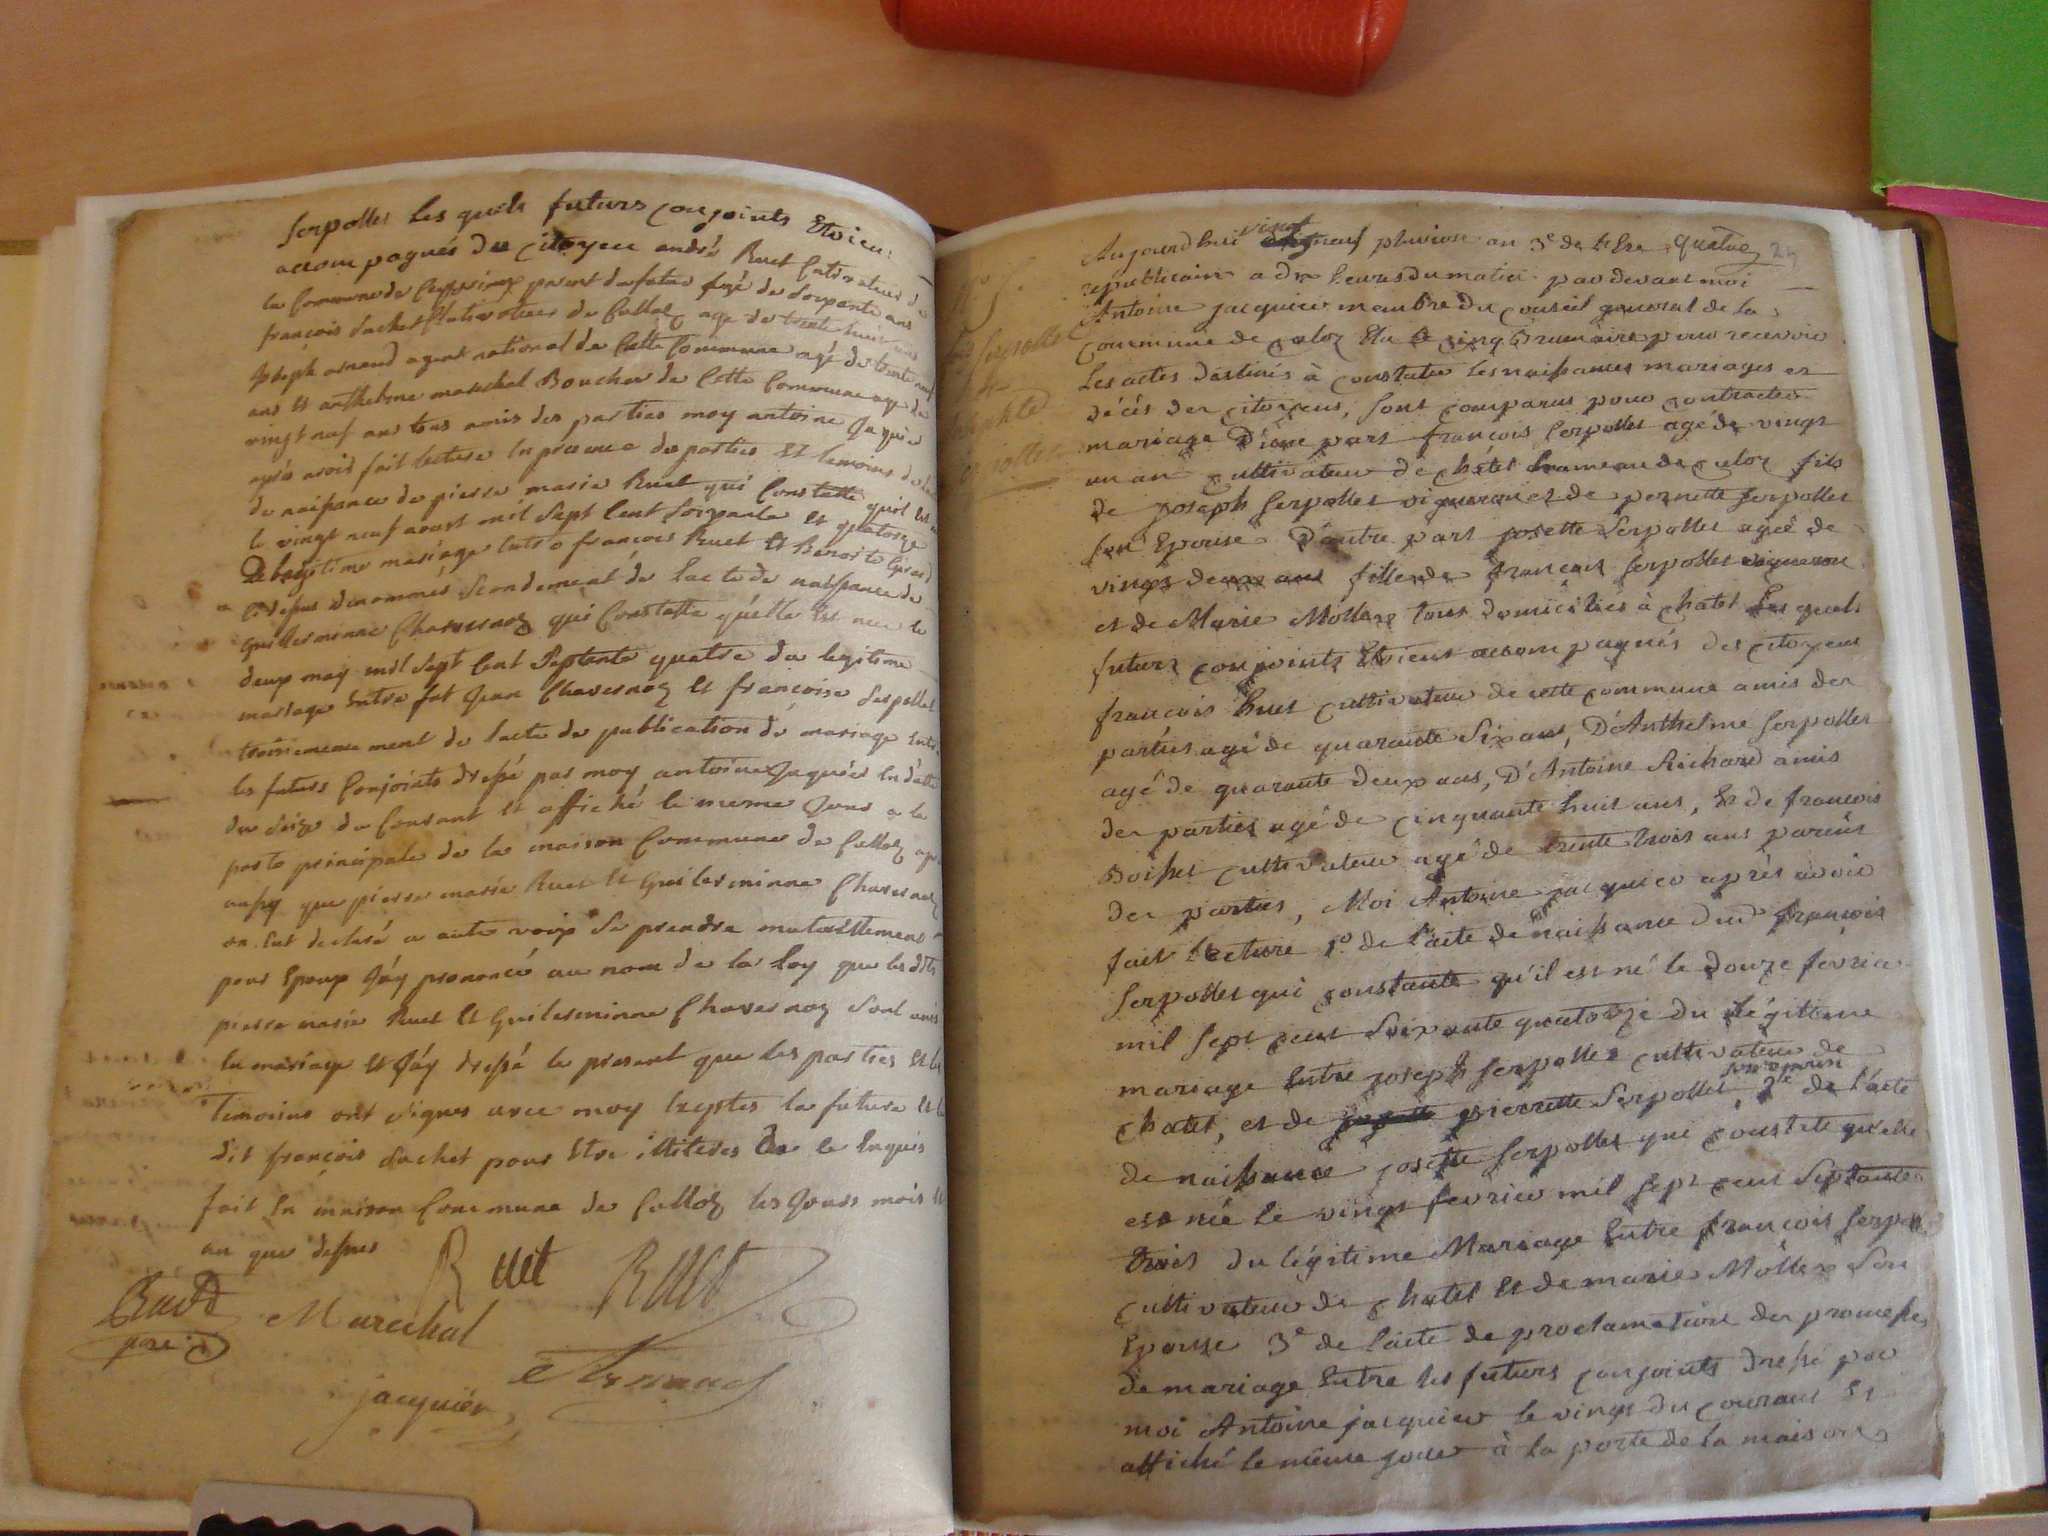 Serpollet les quels futurs conjoints Etoien
accompagnés du citoyen andré Ruet Cultivateur de
la Commune de Ceyzerieux parent du futur agé de soixante ans
françois suchet Cultivateur de Culloz age de trente huit ans
Joseph arnaud agent national de Cette Commune agé de trente neuf
ans Et anthelme marechal Boucher de Cette Commune age de
vingt neuf ans tous amis des parties moy antoine Jaquier
après avoir fait lecture En presence des parties Et temoins de
de naissance de pierre marie Ruet qui Constatte quil Est
le vingt neuf aoust mil sept Cent soixante Et quatorze
De legitime mariage Entre françois Ruet Et
Cidessus denommés secondement de lacte de naissance de
guillerminne Chavernoz qui Constatte quelle Est nee le
deux may mil sept Cent septente quatre du legitime
mariage Entre fut Jean Chavernoz Et françoise Serpollet
troisiemement de lacte de publication de mariage Entre
les futurs Conjoints dressé par moy antoine Jaquier En datte
du seize du Courant Et affiché le meme Jour a la
porte principale de la maison Commune de Culloz
aussy que pierre marie Ruet Et Guillerminne Chavernoz
on Eut declaré a aute voix se prendre mutuellement
pour Epoux J'áy prononcé au nom de la Loy que les dits
pierre marie Ruet Et Guillerminne Chavernoz sont unis
En mariage Et J'áy dressé le present que les parties Et les
Temoins ont signes avec moy Exeptes la future Et le
dit françois suchet pour Etre illiteres De le Enquis
fait En maison Commune de Culloz les Jours mois Et
an que dessus
Ruet Ruet
Marechal
jacquier Arnaud
N° 5.
Serpollet
Et
Serpollet
24
Aujourdhui vingt neuf pluviose an 3e de l'Ere
republicaine a dix heures du matin par devant moi
Antoine jacquier membre du conseil general de la
commune de culoz Elu le cinq Brumaire pour recevoir
Les actes destinés à constater les naissances mariages et
décés des citoyens, sont comparus pour contracter
mariage D'une part françois Serpollet agé de vingt
un an cultivateur de châtel hameau de culoz fils
de Joseph Serpollet vigneron et de pernette Serpollet
son Epouse D'autre part josette Serpollet agée de
vingt deux ans fille de françois Serpollet vigneron
et de Marie Mollex tous domiciliés à chatel Les quels
futurs conjoints Etoient accompagnés des citoyens
françois huet cultivateur de cette commune amis des
parties agé de quarante Six ans, D'Anthelme Serpollet
agé de quarante deux ans, D'Antoine Richard amis
des parties agé de cinquante huit ans, Et de françois
Boisset cultivateur agé de trente trois ans parens
des parties, Moi Antoine jacquier après avoir
fait lecture 1o de l'acte de naissance dud françois
Serpollet qui constante qu'il est né le douze fevrier
mil sept cent Soixante quatorze du légitime
mariage Entre joseph Serpollet cultivateur de
chatel, et de pierrette Serpollet, 2e de l'acte
de naissance josette Serpollet qui constate qu'elle
est née le vingt fevrier mil sept cent Septante
trois du légitime Mariage Entre françois Serpollet
cultivateur de chatel Et de marie Mollex Son
Epouse 3e de l'acte de proclamation des promesses
de mariage Entre les futurs conjoints dressé par
moi Antoine jacquier le vingt du courant Et
affiché le même jour à la porte de la maison